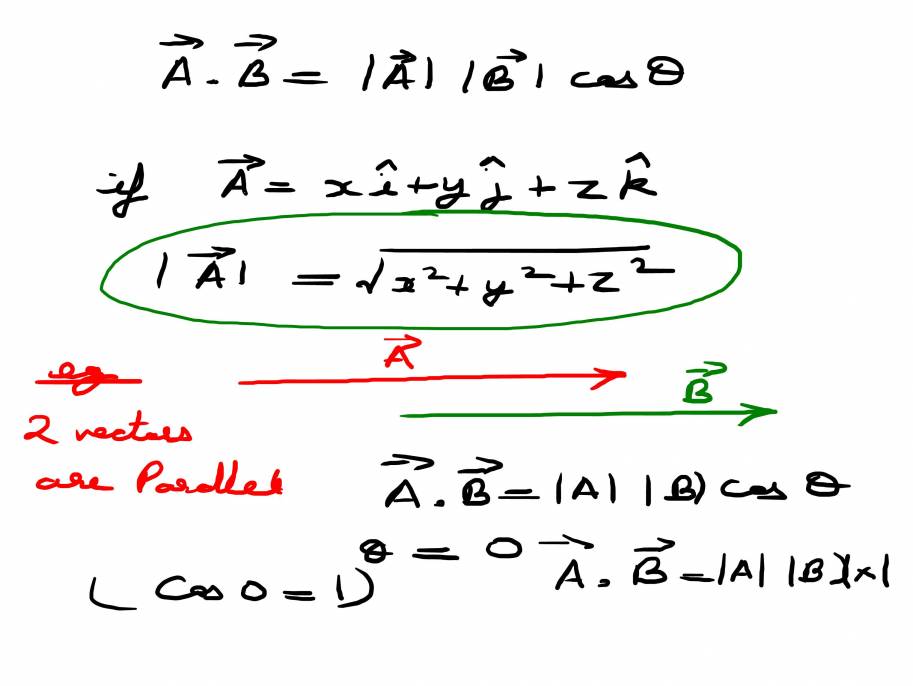 A⃗ . B⃗ = |A⃗| |B⃗| cos θ
if A⃗ = x î + y ĵ + z k̂
|A⃗| = √x² + y² + z²
A⃗
eg
B⃗
2 vectors
are Parallel
A⃗ . B⃗ = |A| |B| cos θ
θ = 0
A⃗ . B⃗ = |A| |B| x 1
( Cos 0 = 1 )